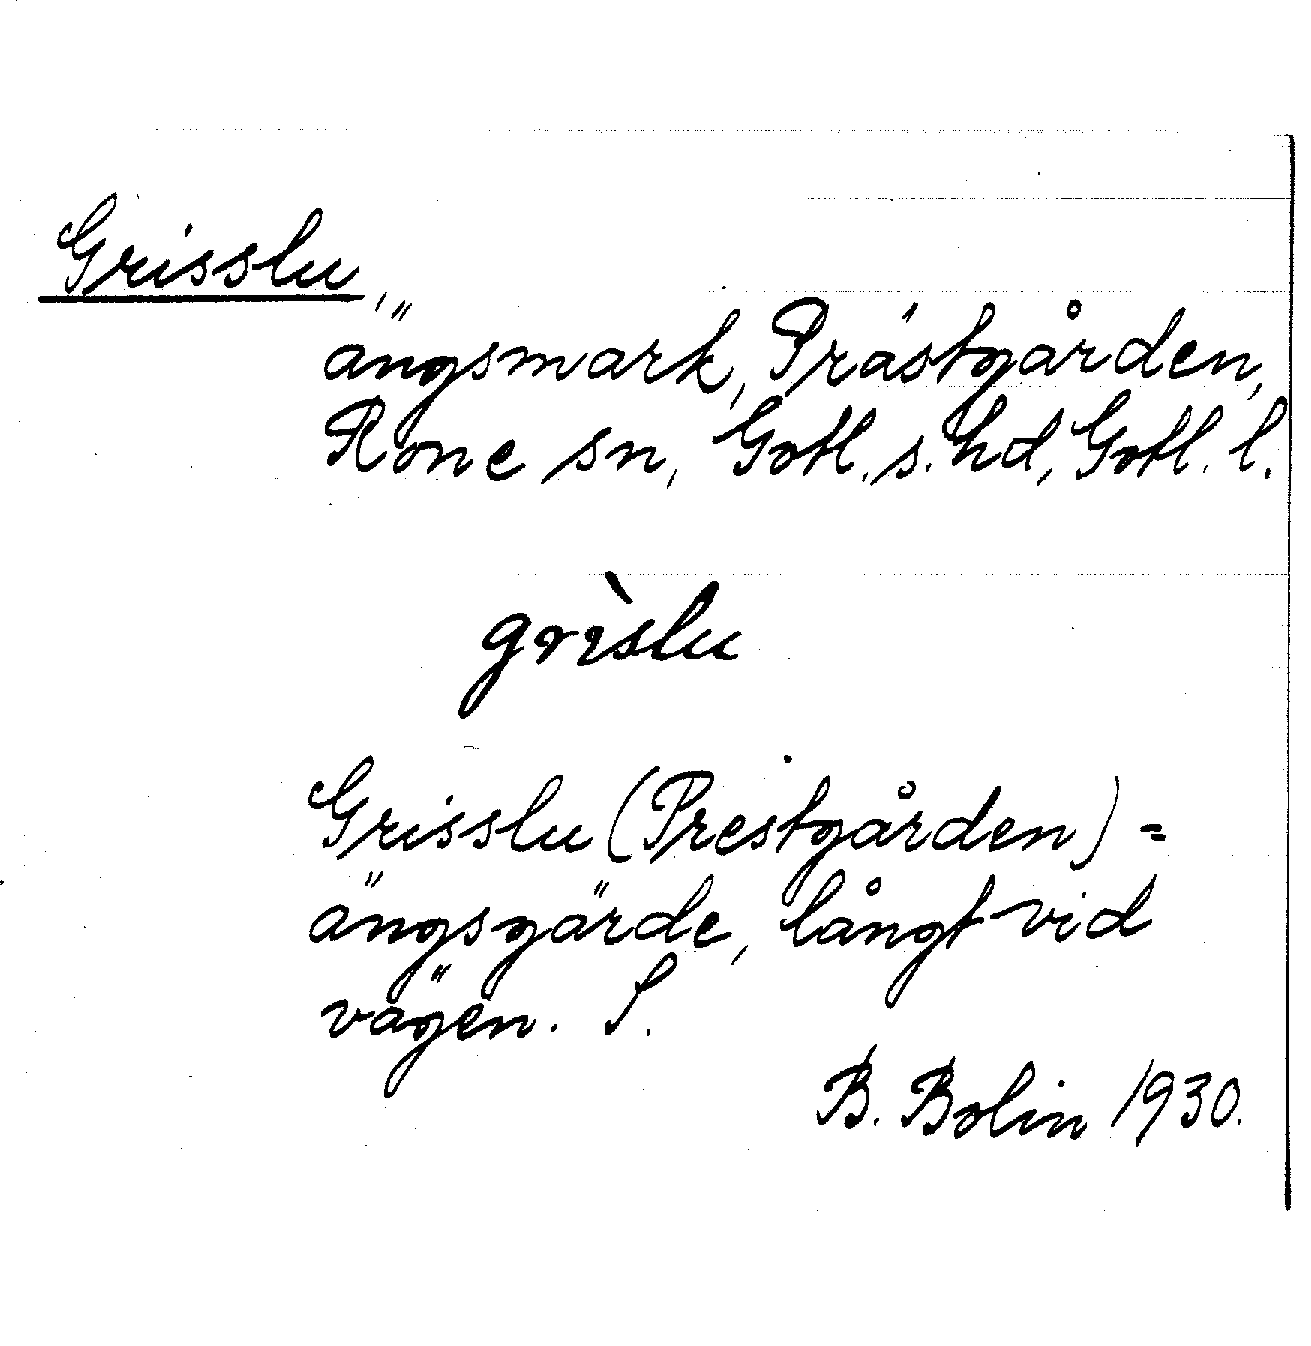 Grisslu,
ängsmark, Prästgården,
Rone sn, Gotl. s. hd, Gotl. l.
grìslu
Grisslu (Prestgården) =
ängsgärde, långt vid
vägen. S.
B. Bolin 1930.